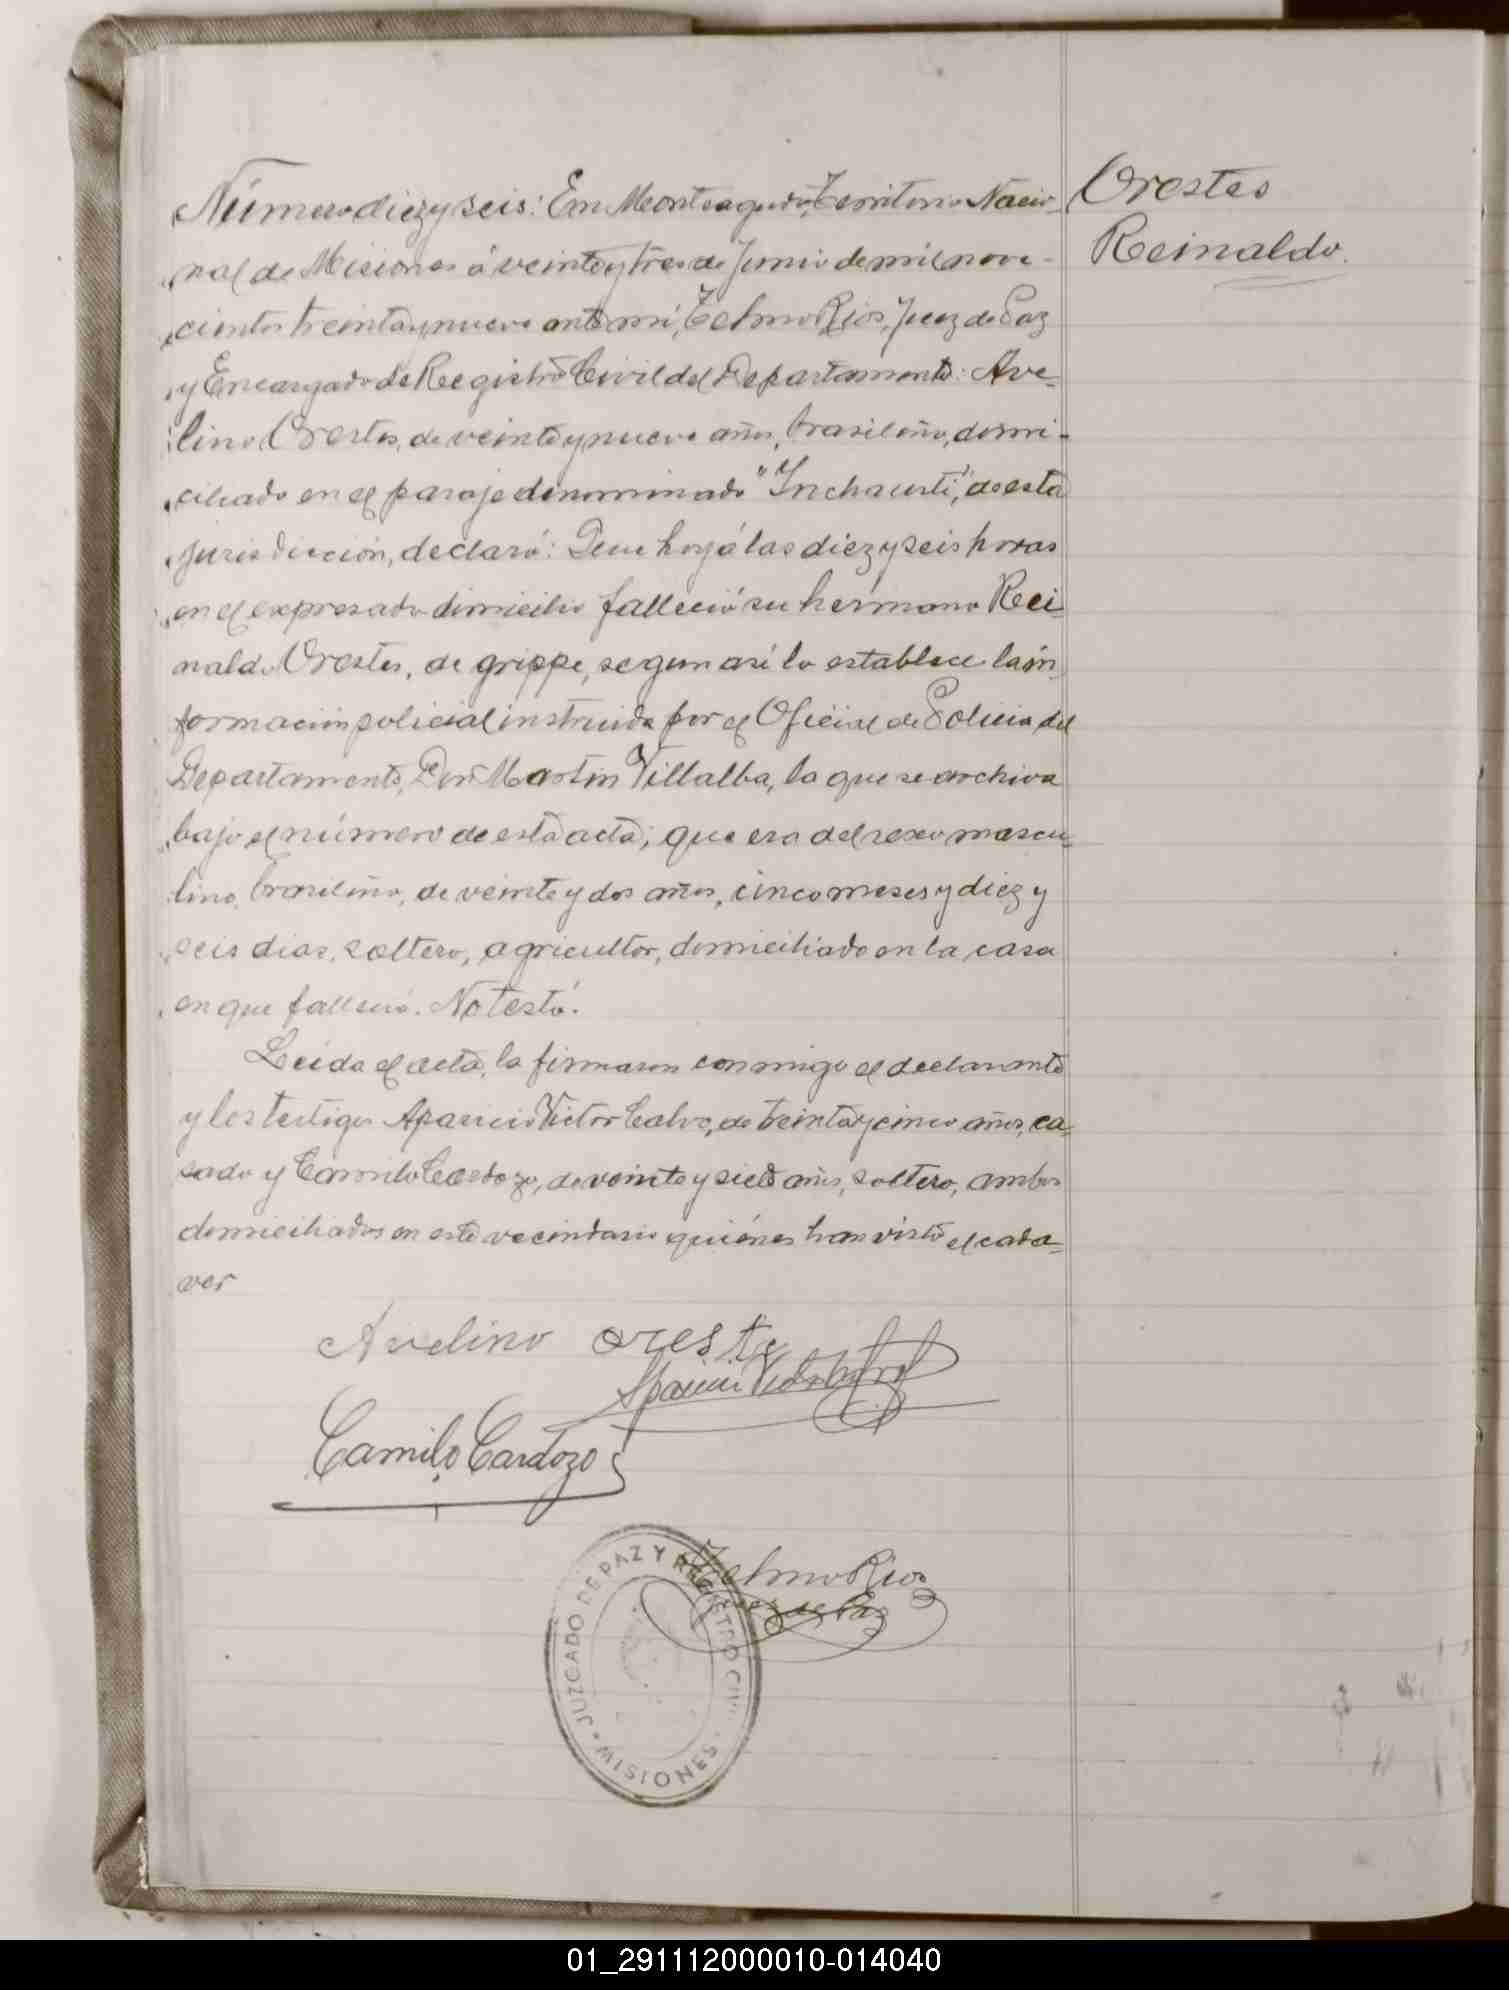 Número diez y seis: En Monteagudo, Territorio Nacio-
nal de Misiones á veinte y tres de Junio de mil nove-
cientos treinta y nueve ante mí, Telmo Rios, Juez de Paz
y Encargado de Registro Civil del Departamento: Ave-
lino Orestes, de veinte y nueve años, brasileño, domi-
ciliado en el paraje denominado "Inchausti", de esta
jurisdicción, declaró: Que hoy á las diez y seis horas
en el expresado domicilio falleció su hermano Rei
naldo Orestes, de grippe, segun asi lo establece la in
formación policial instruida por el Oficial de Policia del
Departamento, Don Martin Villalba, la que se archiva
bajo el número de esta acta; que era del sexo mascu
lino, brasileño, de veinte y dos años, cinco meses y diez y
seis dias, soltero, agricultor, domiciliado en la casa
en que falleció. No testó.
Leida el acta, la firmaron conmigo el declarante
y los testigos Aparicio Victor Calvo, de treinta y cinco años, ca-
sado y Camilo Cardozo, de veinte y siete años, soltero, ambos
domiciliados en este vecindario quiénes han visto el cada-
ver
Orestes
Reinaldo.
Avelino oreste
Aparicio Victor
Camilo Cardozo
Telmo Rios
Juez de Paz
JUZGADO DE PAZ Y REGISTRO CIVIL
MISIONES
01_291112000010-014040